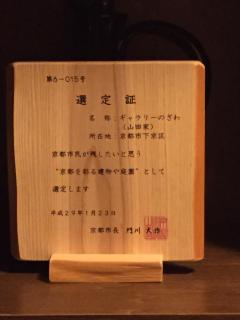 第6-015号
選定証
名称：ギャラリーのざわ
（山田家）
所在地：京都市下京区
京都市民が残したいと思う
“京都を彩る建物や庭園”として
選定します
平成29年1月23日
京都市長 門川大作